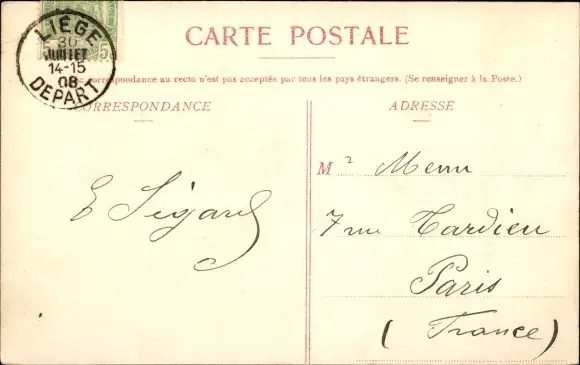 LIÉGE
30
JUILLET
14-15
08
DÉPART
5
CARTE POSTALE
correspondance au recto n'est pas acceptée par tous les pays étrangers. (Se renseigner à la Poste.)
CORRESPONDANCE
ADRESSE
E Sigard
Mr Menu
7 rue Tardieu
Paris
(France)